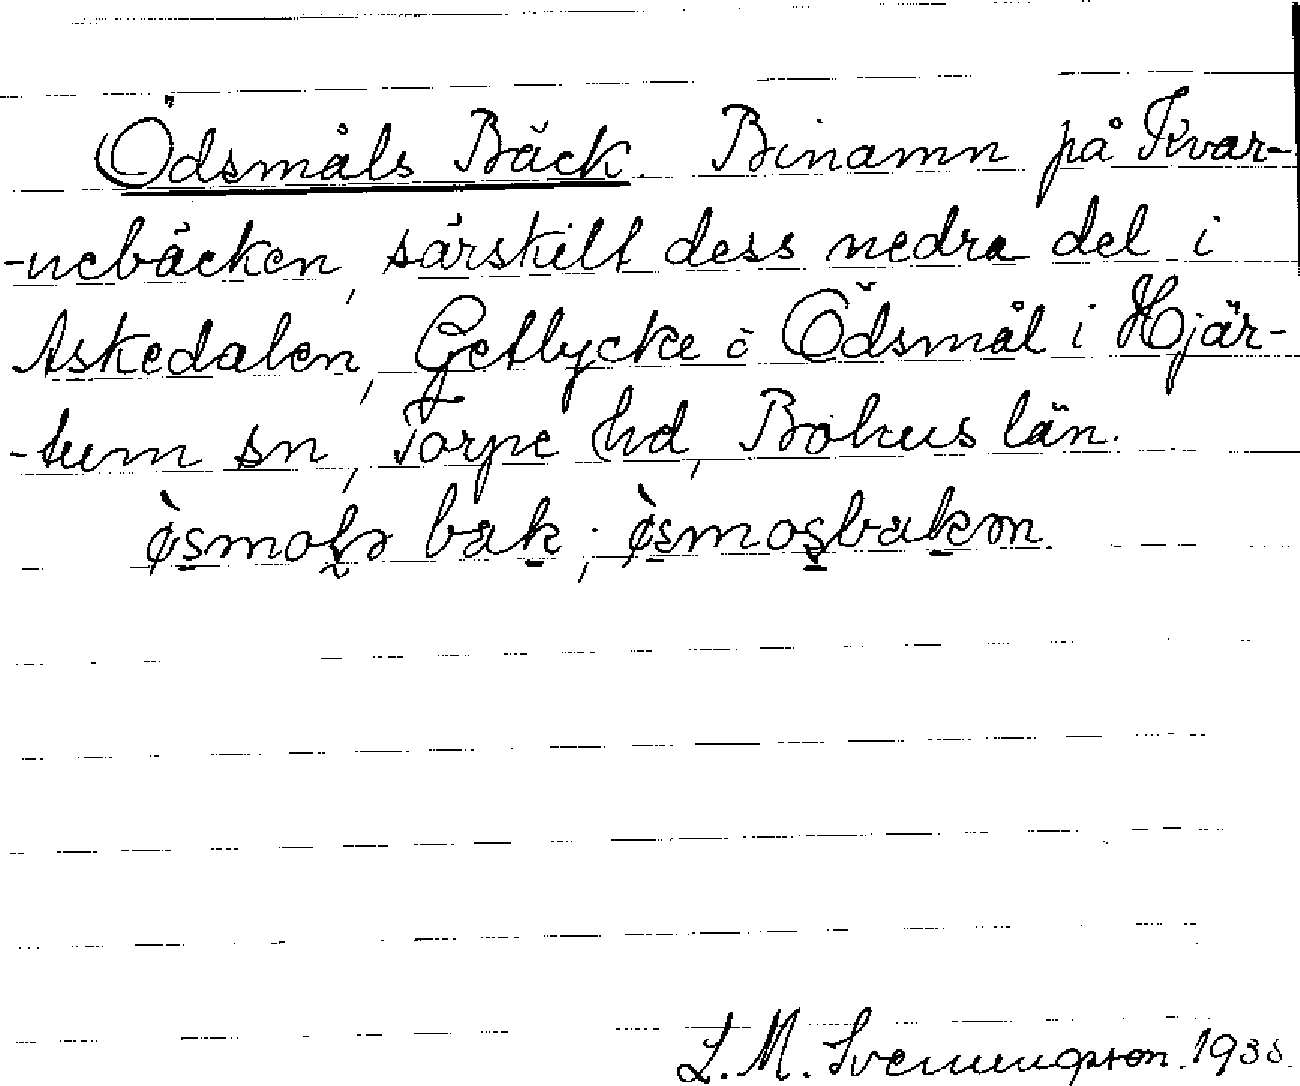 Ödsmåls Bäck. Binamn på Kvar-
-nebäcken, särskilt dess nedra del i
Askedalen, Getlycke o Ödsmål i Hjär-
-tum sn, Torpe hd, Bohus län.
L. M. Svenungsson.